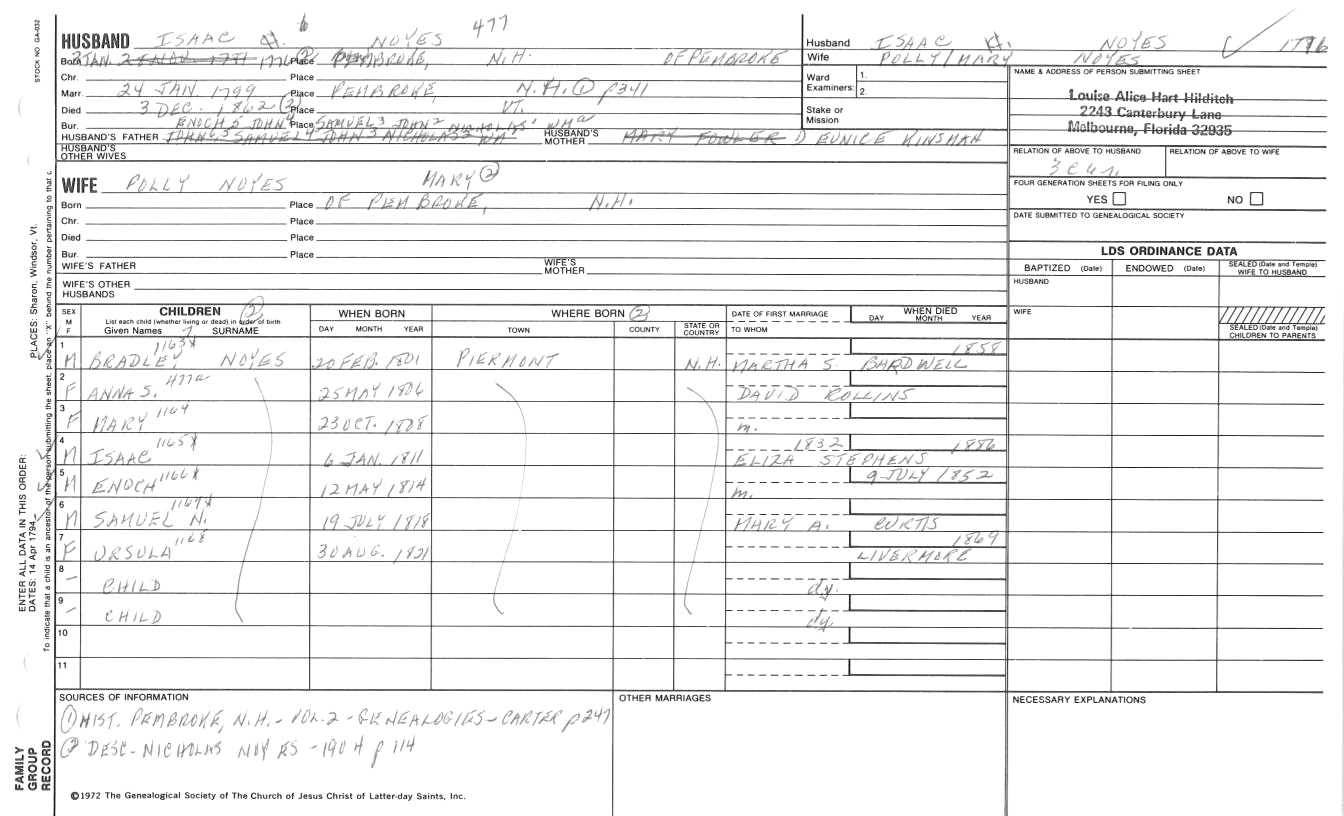 STOCK NO. GA-032
HUSBAND ISAAC H. 6 NOYES 477
Born 3 JAN. 2 1776 Place (2) PEMBROKE, N.H. OF PEMBROKE
Chr. Place
Marr. 24 JAN. 1799 Place PEMBROKE, N.H. (1) p341
Died 3 DEC. 1862 (2) Place VT.
Bur. ENOCH 5 JOHN 4 Place SAMUEL 3 JOHN 2 NICHOLAS 1
HUSBAND'S FATHER JOHN 5 SAMUEL 4 JOHN 3 NICHOLAS 2 HUSBAND'S MOTHER MARY FOWLER 1) EUNICE KINSMAN
HUSBAND'S OTHER WIVES
WIFE POLLY NOYES MARY (2)
Born Place OF PEMBROKE, N.H.
Chr. Place
Died Place
Bur. Place
WIFE'S FATHER WIFE'S MOTHER
WIFE'S OTHER HUSBANDS
Husband ISAAC H. NOYES 1776
Wife POLLY/MARY NOYES
Ward Examiners: 1. 2.
Stake or Mission
NAME & ADDRESS OF PERSON SUBMITTING SHEET
Louise Alice Hart Hilditch
2243 Canterbury Lane
Melbourne, Florida 32935
RELATION OF ABOVE TO HUSBAND RELATION OF ABOVE TO WIFE
3 C 4 r.
FOUR GENERATION SHEETS FOR FILING ONLY
YES NO
DATE SUBMITTED TO GENEALOGICAL SOCIETY
LDS ORDINANCE DATA
BAPTIZED (Date) ENDOWED (Date) SEALED (Date and Temple) WIFE TO HUSBAND
HUSBAND
WIFE
SEALED (Date and Temple) CHILDREN TO PARENTS
SEX M F CHILDREN (2) WHEN BORN WHERE BORN (2) DATE OF FIRST MARRIAGE WHEN DIED
List each child (whether living or dead) in order of birth
Given Names 7 SURNAME DAY MONTH YEAR TOWN COUNTY STATE OR COUNTRY TO WHOM DAY MONTH YEAR
1 M BRADLEY 1163X NOYES 20 FEB. 1801 PIERMONT N.H. MARTHA S. BARDWELL 1858
2 F ANNA S. 477a 25 MAY 1806 DAVID ROLLINS
3 F MARY 1164 23 OCT. 1808 m.
4 M ISAAC 1165X 6 JAN. 1811 1832 ELIZA STEPHENS 1886
5 M ENOCH 1166X 12 MAY 1814 m. 9 JULY 1852
6 M SAMUEL N. 1167X 19 JULY 1818 MARY A. CURTIS
7 F URSULA 1168 30 AUG. 1821 LIVERMORE 1869
8 - CHILD dy.
9 - CHILD dy.
10
11
SOURCES OF INFORMATION
(1) HIST. PEMBROKE, N.H. - VOL. 2 - GENEALOGIES - CARTER p 247
(2) DESC - NICHOLAS NOYES - 1904 p 114
OTHER MARRIAGES
NECESSARY EXPLANATIONS
©1972 The Genealogical Society of The Church of Jesus Christ of Latter-day Saints, Inc.
FAMILY GROUP RECORD
ENTER ALL DATA IN THIS ORDER:
DATES: 14 Apr 1794
PLACES: Sharon, Windsor, Vt.
To indicate that a child is an ancestor of the person submitting the sheet, place an "X" behind the number pertaining to that c